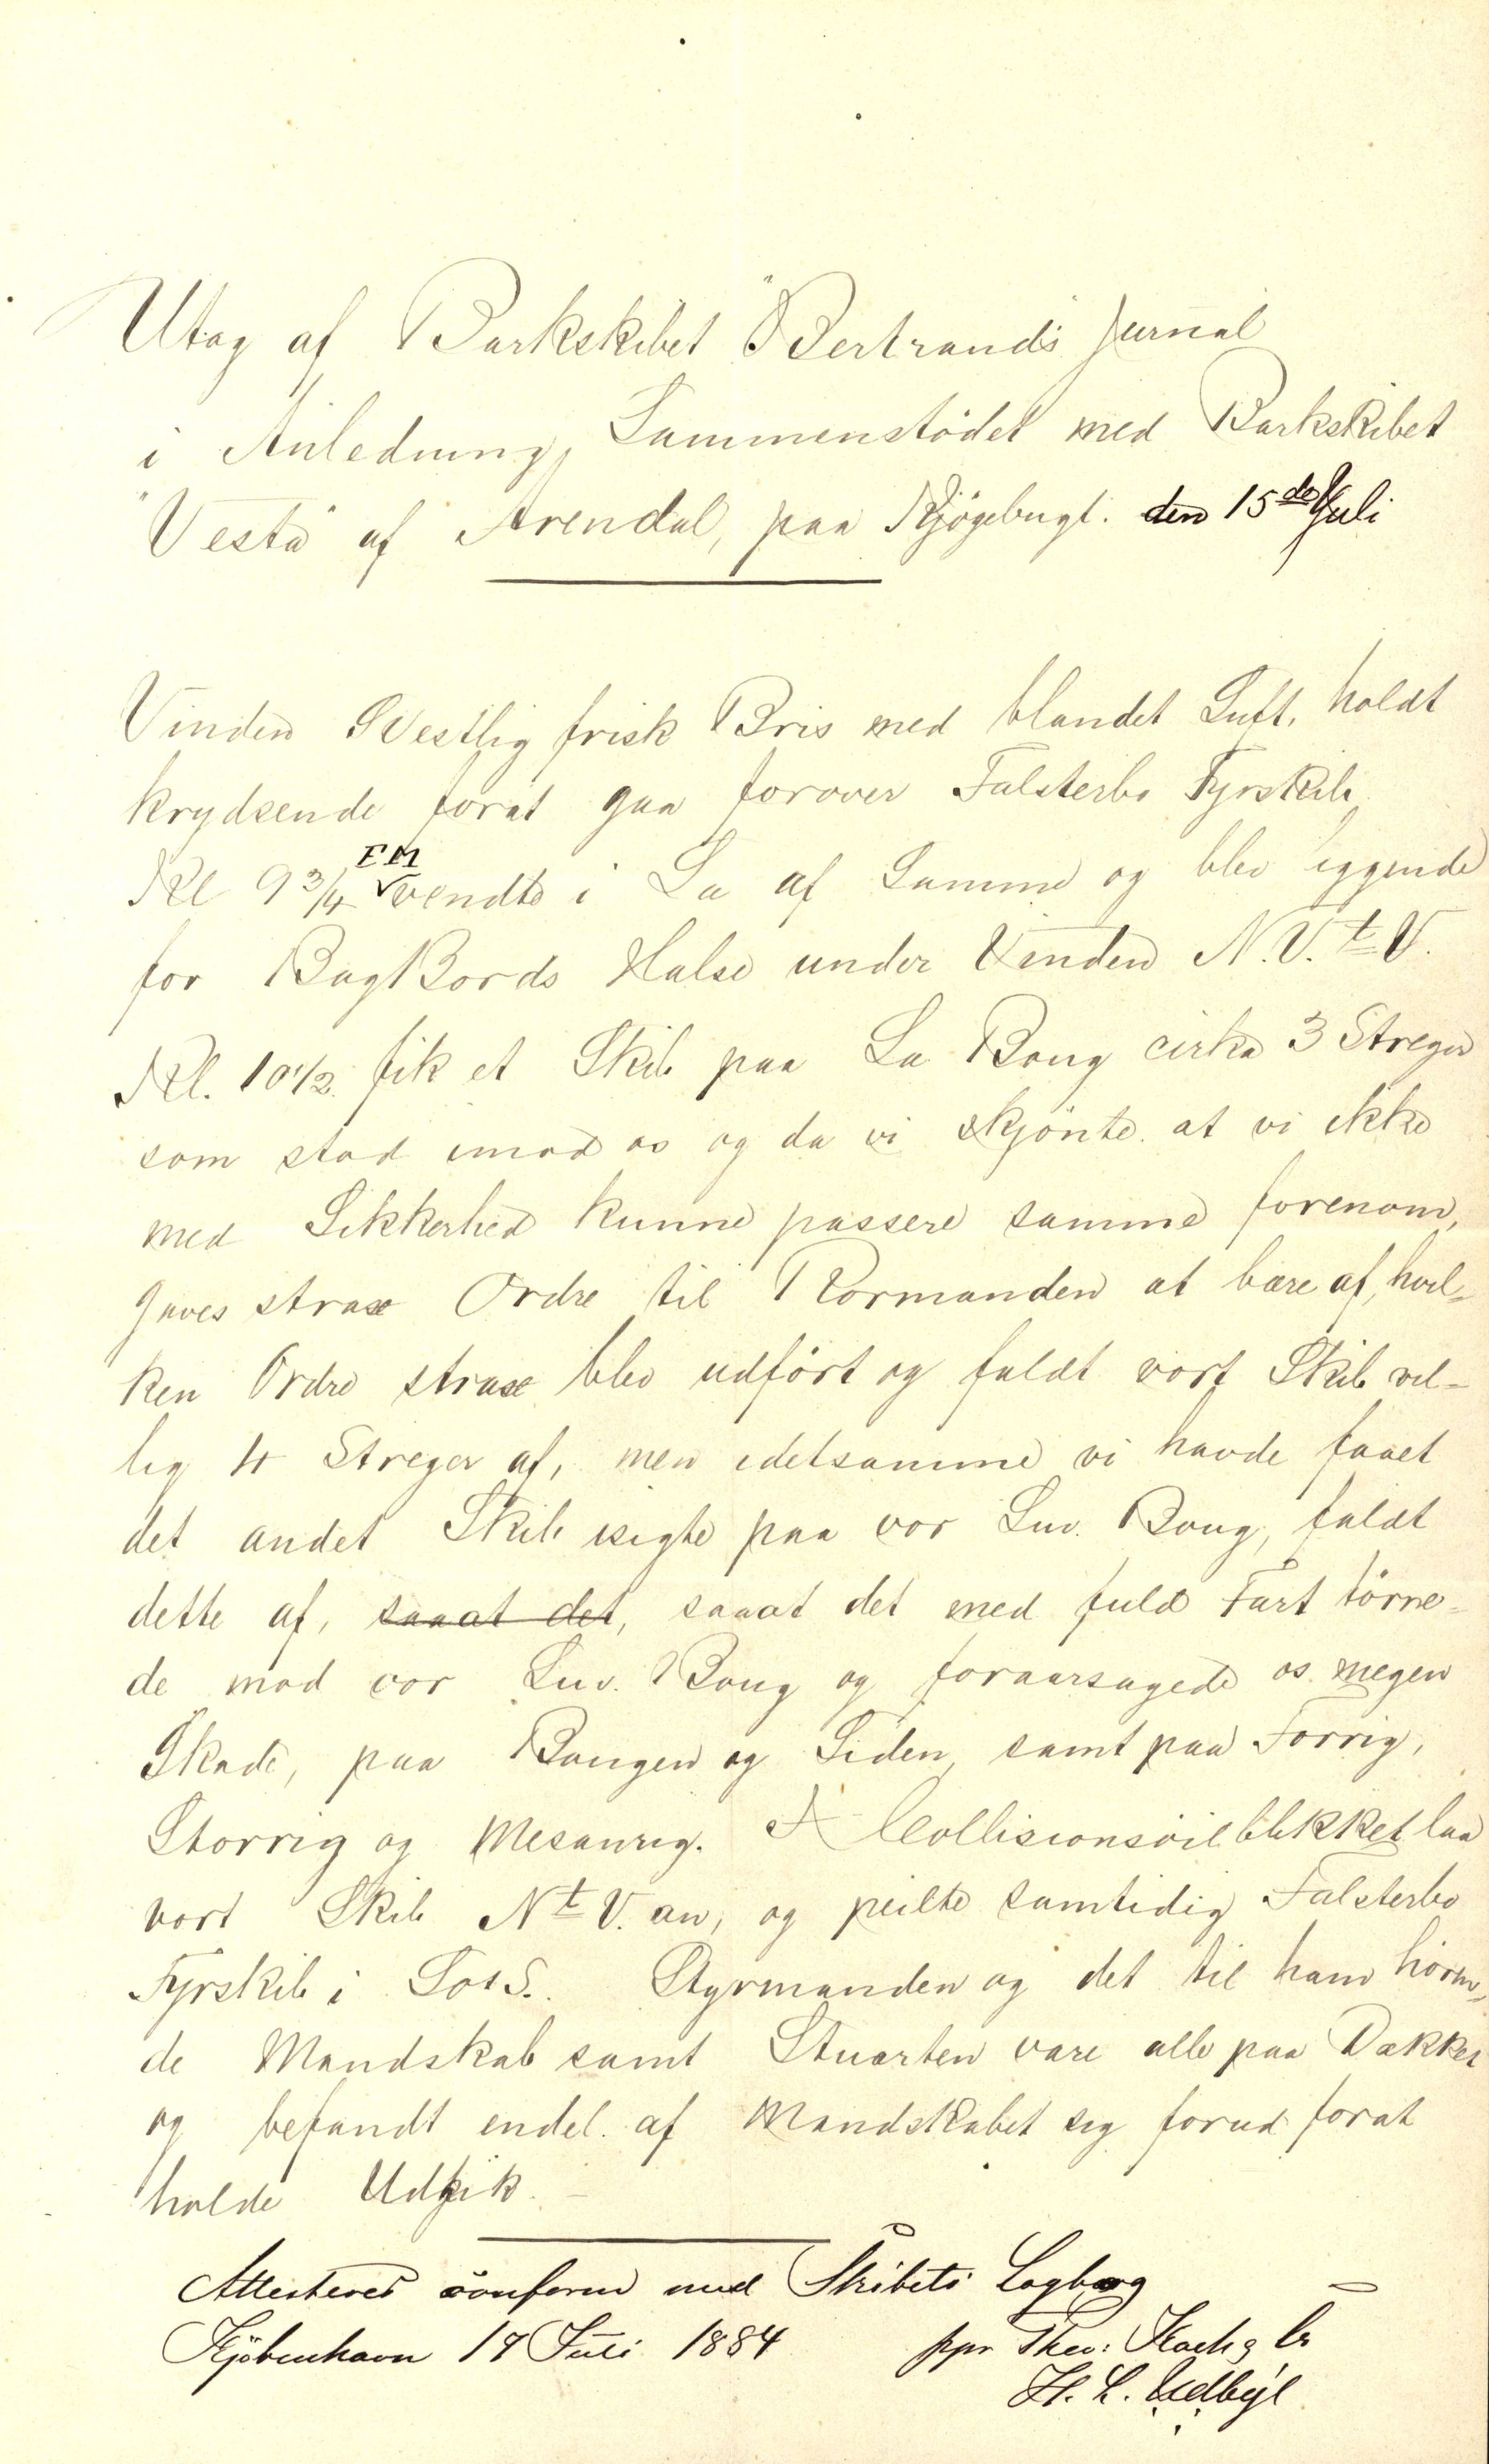 Utog af Barkskibet "Bertrand's Jurnal
i Anledning, Sammenstödet med Barkskibet
"Vesta" af Arendal, paa Kjögebugt. den 15de Juli
Vinden SVestlig frisk Bris med blandet Luft, holdt
krydsende forat gaa forover Falsterbo Fyrskib
Kl 9 3/4 EM vendte i La af Samme og blev liggende
for BagBords Halse under Vinden N.V.t V.
Kl. 10 1/2 fik et Skib paa La Boug cirka 3 Streger
som stod imod os og da vi skjönte at vi ikke
med Sikkerhed kunne passere samme forenom,
gaves strax Ordre til Rormanden at bære af, hvil-
ken Ordre strax blev udfört og faldt vort Skib vil-
lig 4 Streger af, men idetsamme vi havde faaet
det andet Skib isigte paa vor Luv. Boug, faldt
dette af, saaat det, saaat det med fuld Fart törne-
de mod vor Luv. Boug og foraarsagede os megen
Skade, paa Bougen og Siden, samt paa Forrig,
Storrig og Mesanrig. I Collisionsöieblikket laa
vort Skib Nt V. an, og peilte samtidig Falsterbo
Fyrskib i SotS. Styrmanden og det til ham hören-
de Mandskab samt Stuarten vare alle paa Dækket
og befandt endel af Mandskabet sig forud forat
holde Udkik.
Attesteres conform med Skibets Logbog
Kjöbenhavn 17 Juli 1884 ppr Theo: Koch & Co
H. L.